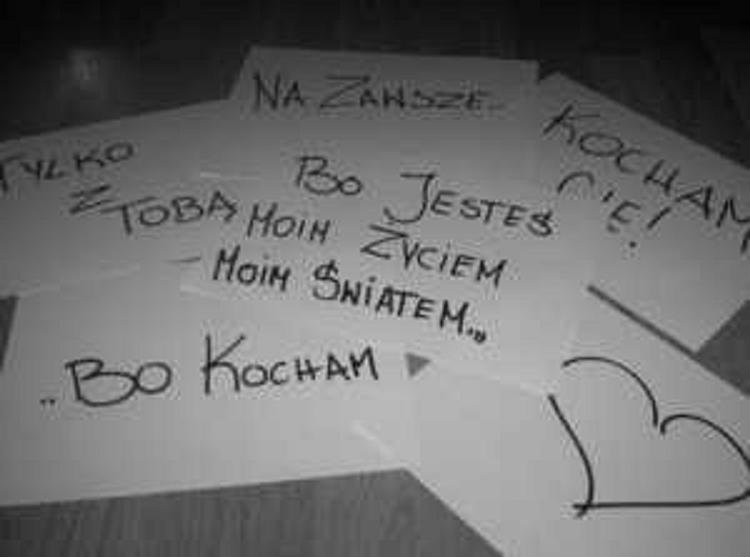 NA ZAWSZE..
KOCHAM
CIĘ!
TYLKO
Z
TOBĄ
BO JESTEŚ
MOIM ŻYCIEM
- MOIM ŚWIATEM...
..BO KOCHAM